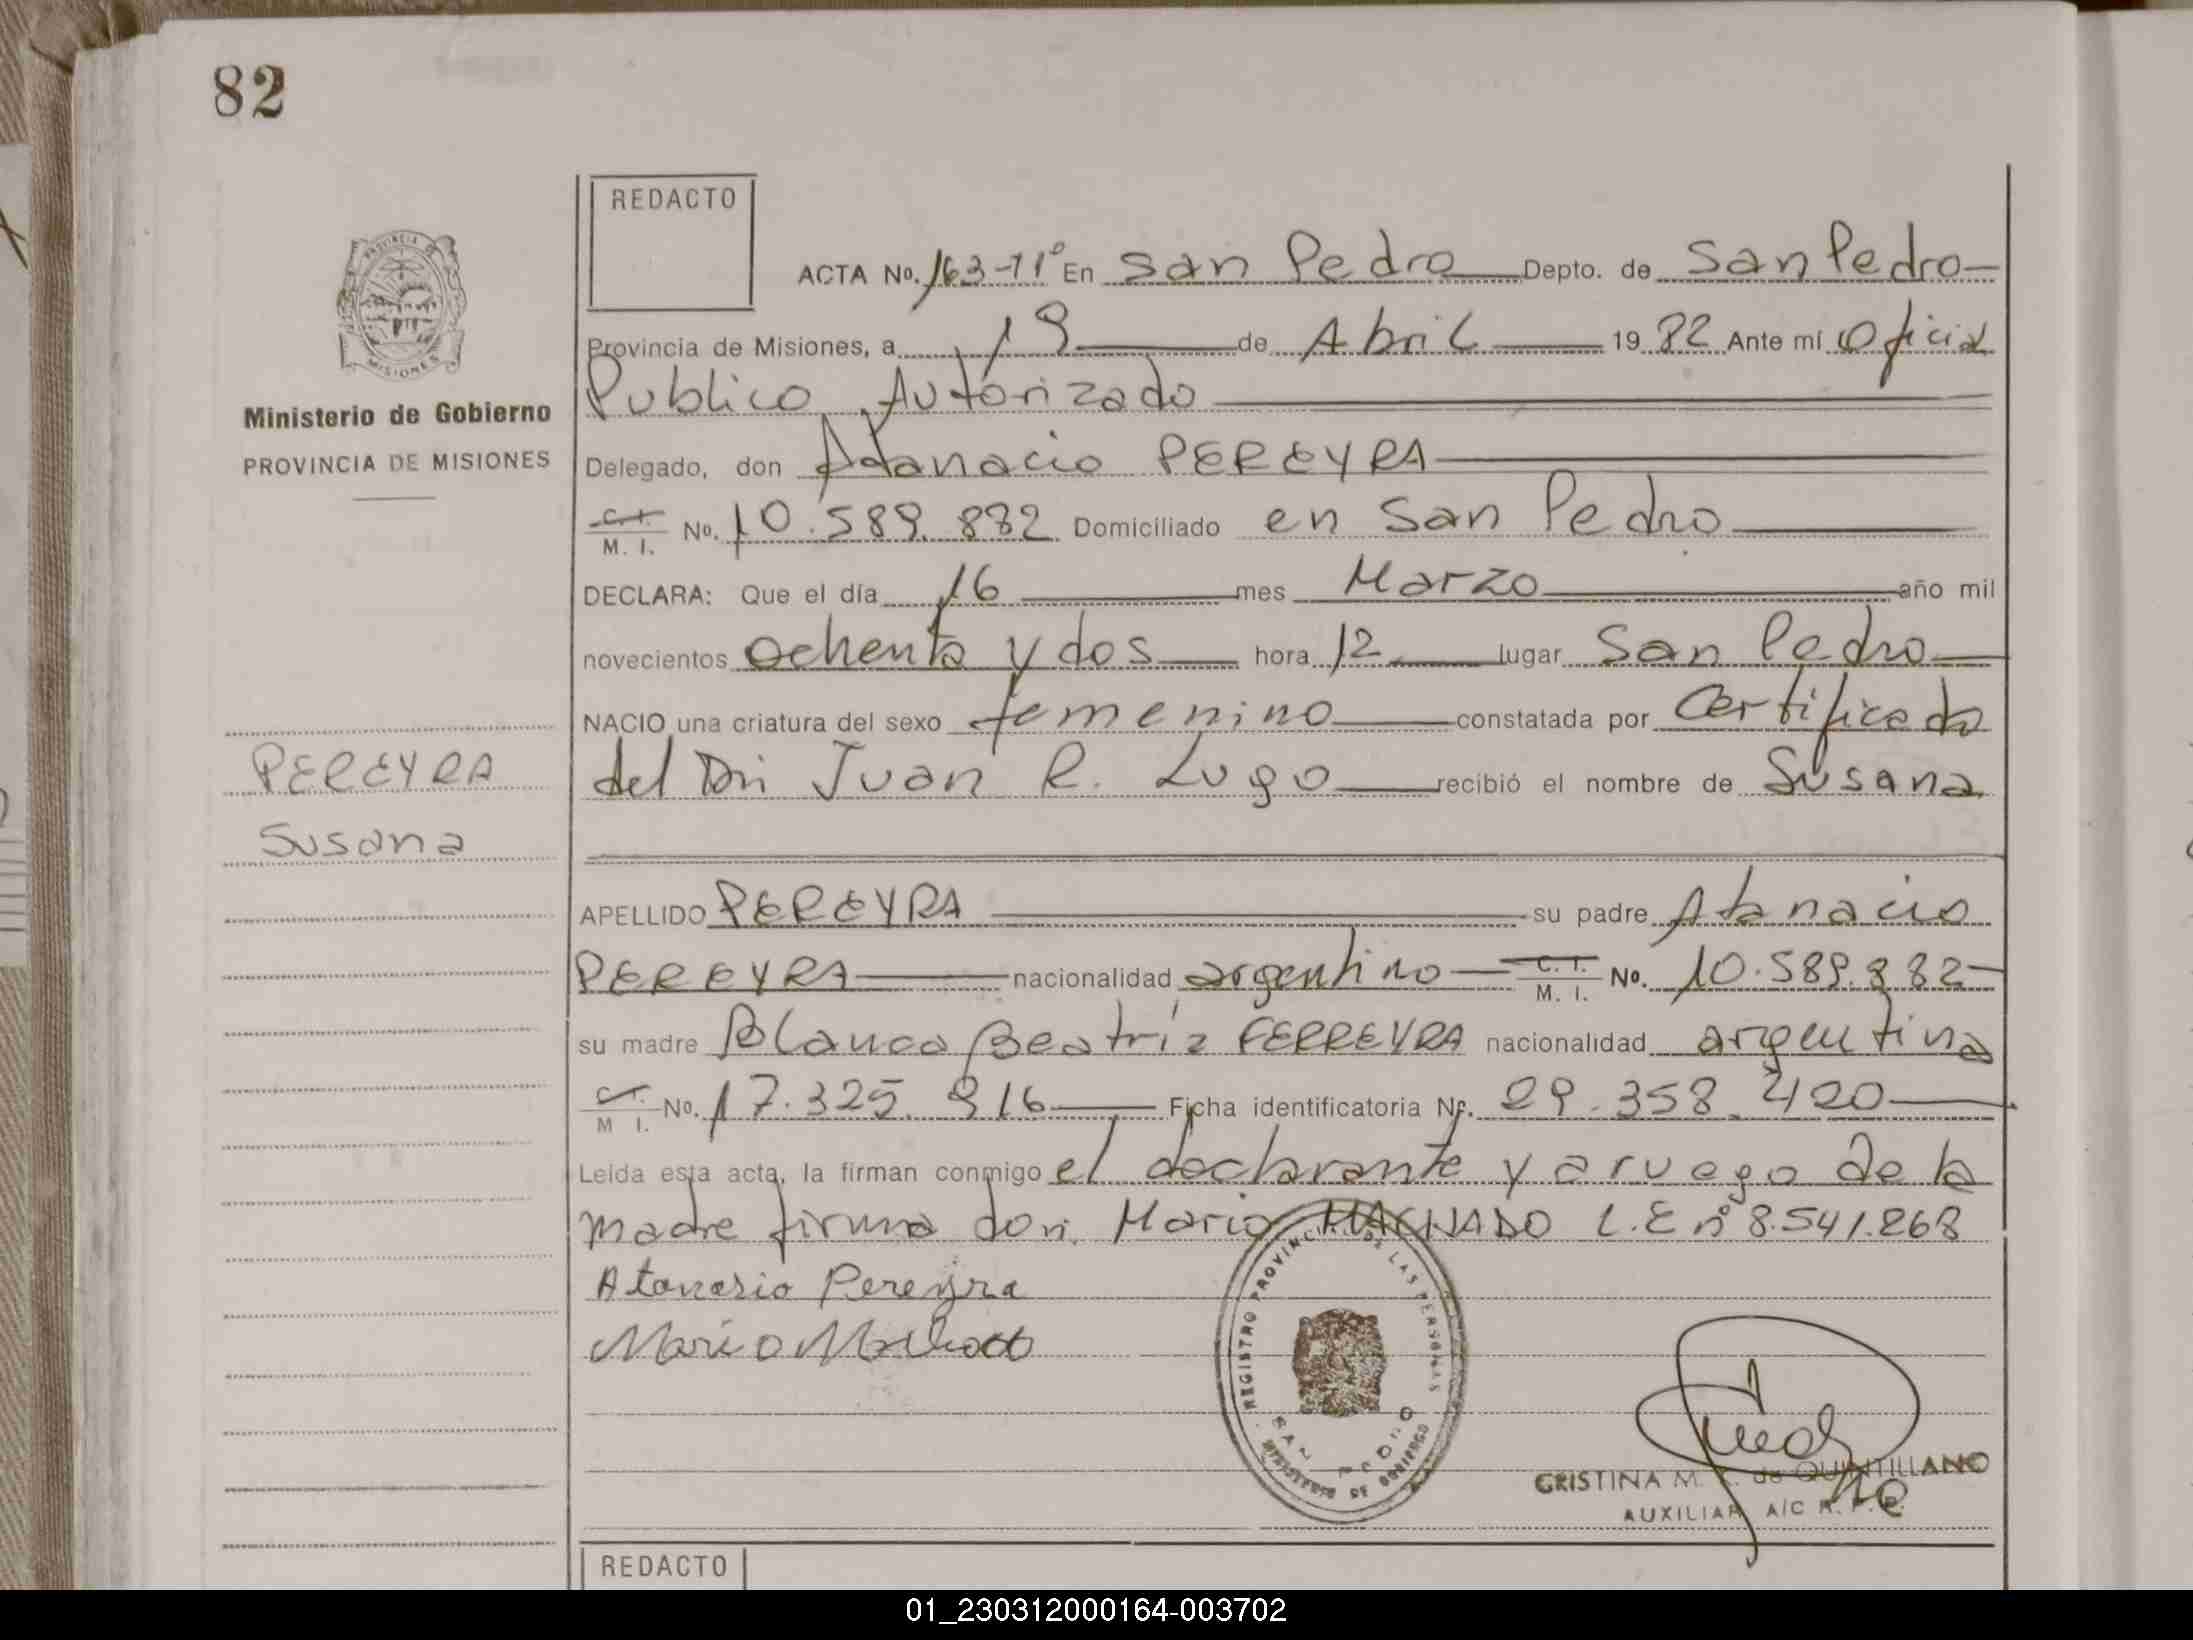 82
REDACTO
PROVINCIA DE
MISIONES
Ministerio de Gobierno
PROVINCIA DE MISIONES
PEREYRA
Susana
ACTA No. 163-T1° En San Pedro Depto. de San Pedro
Provincia de Misiones, a 19 de Abril 1982 Ante mí Oficial
Publico Autorizado
Delegado, don Atanacio PEREYRA
C. I. M. I. No. 10.589.882 Domiciliado en San Pedro
DECLARA: Que el día 16 mes Marzo año mil
novecientos ochenta y dos hora 12 lugar San Pedro
NACIO una criatura del sexo femenino constatada por Certificado
del Dr. Juan R. Lugo recibió el nombre de Susana
APELLIDO PEREYRA su padre Atanacio
PEREYRA nacionalidad argentino C. I. M. I. No. 10.589.882
su madre Blanca Beatríz FERREYRA nacionalidad argentina
C. I. M I. No. 17.325.916 Ficha identificatoria Nº. 29.358.420
Leída esta acta, la firman conmigo el declarante y a ruego de la
madre firma don Mario MACHADO L.E nº 8.541.268
Atanasio Pereyra
Mario Machado
REGISTRO PROVINCIAL DE LAS PERSONAS
SAN PEDRO
MINISTERIO DE GOBIERNO
CRISTINA M. de QUINTILLANO
AUXILIAR A/C R. P. P.
REDACTO
01_230312000164-003702